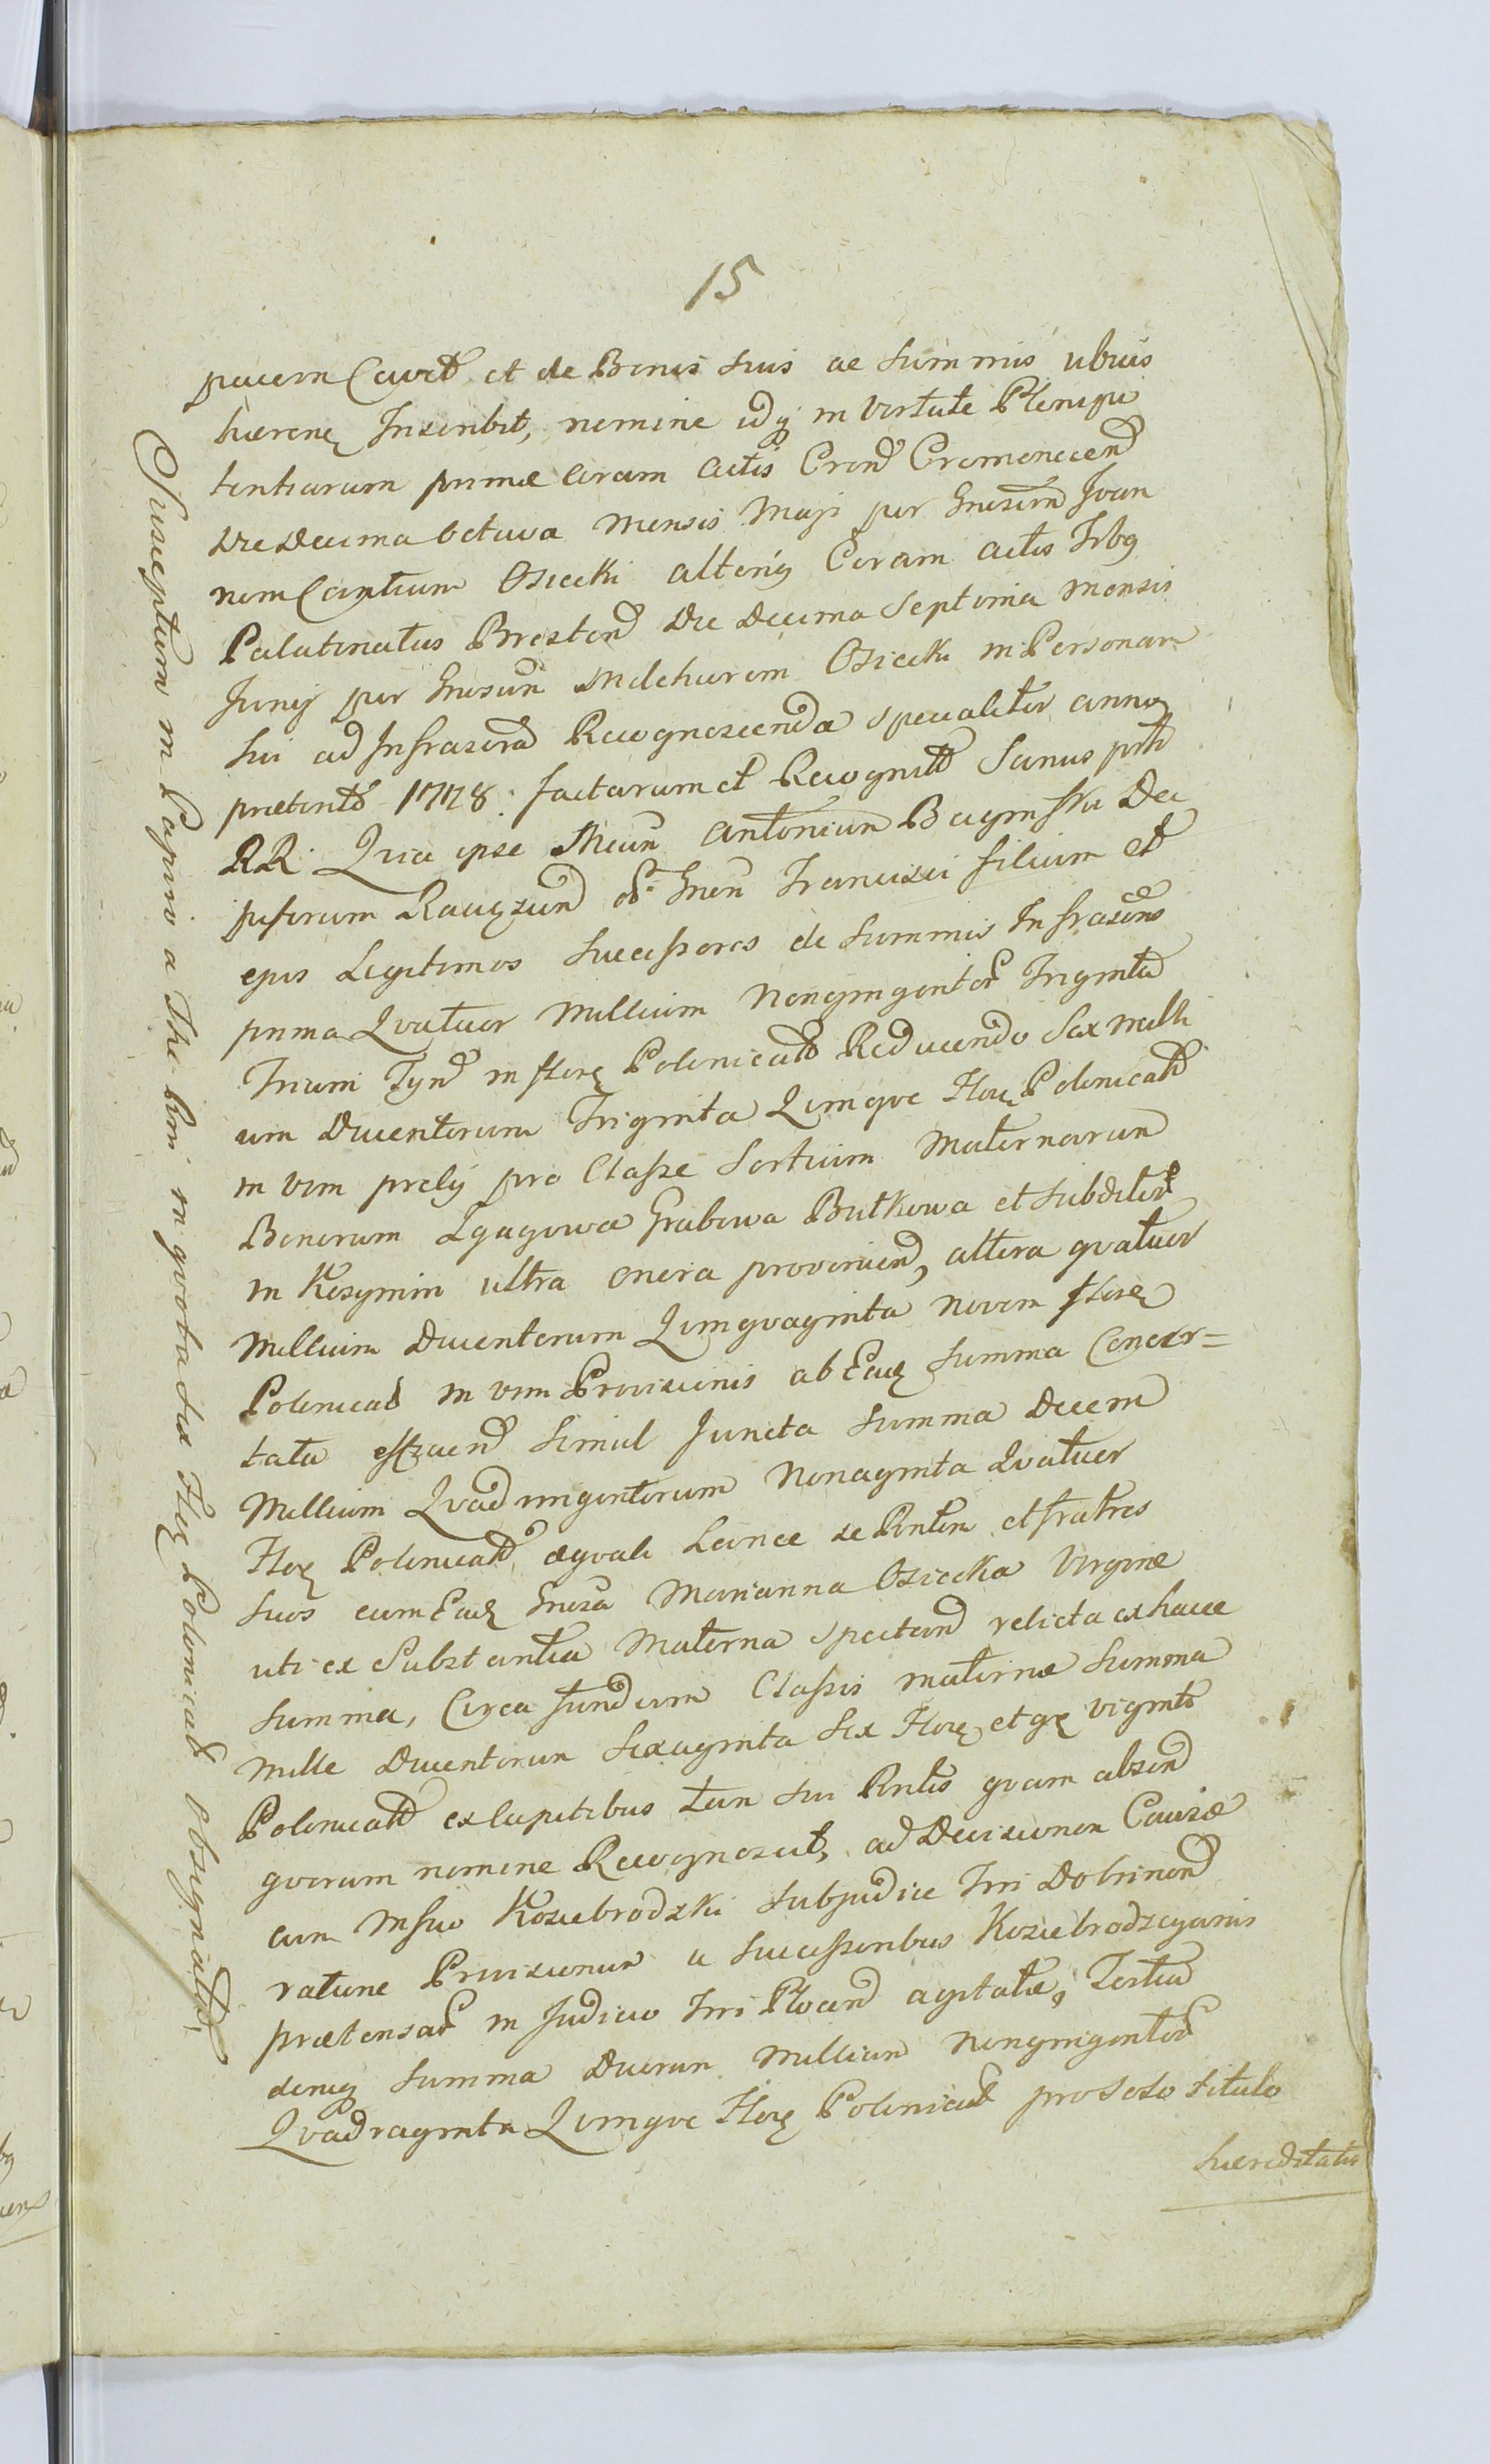 15
pacem Cavet et de Bonis suis ac Summis ubivis
haeren Inscribit, nomine idq in Virtute Plenipo
tentiarum primae coram Actis Crend Cremenecend
Die Decima Octava Mensis Maji per Gnosum Joan
nem Cantium Osiecki alteriq Coram actis Trbq
Palatinatus Brestend Die Decima Septima Mensis
Junij per Gnosum Melchiorem Osiecki in Personam
Sui ad Infrascrd Recognoscenda specialiter anno
praeterito 1778. factarum et Recognitt Sanus prtt
RR. Quia ipse Mcum Antonium Baginski De
pisorum Ravezund olt Gnen Francisci filium et
ejus Legitimos Successores de Summis Infrascris
prima Quatuor Millium Nongingentor Triginta
Trium Tynd in flore Polonicald Reducendo Sex milli
um Ducentorum Triginta Quinque Flor Polonicald
in vim prelij pro Classe Sortium Maternarum
Bonorum Zgagowa Grabowa Butkowa et Subditor
in Kosymin ultra onera proveniend, altera quatuor
Millium Ducentorum Quinquaginta novem flore
Polonicald in vim Provisionis ab Eade Summa Concer=
tata effluend Simul Juncta Summa Decem
Millium Quadringentorum Nonaginta Quatuor
Flor Polonicald aequali Lance se Rntem et fratres
Suos cum Eade Gnosa Marianna Osiecka Virgine
uti ex Substantia Materna spectand relicta ex hacce
Summa, Circa fundum Classis maternae Summa
Mille Ducentorum Sexaginta Sex Flor et gr viginti
Polonicald ex capitibus tam sui Rntis quam absend
quorum nomine Recognoscit, ad Decisionem Causae
cum Msuo Koziebrodzki Subjudice Trri Dobrinend
ratione Provisionum a Successoribus Koziebrodzcyanis
praetensar in Judicio Trri Plocend agitatae, Tertia
deniq Summa Duorum Millium Nongingentor
Quadraginta Quinque Flor Polonicald pro Toto titulo
haereditatis
Susceptum in Papiro a The Rni in quota Sex Flor Polonicald obsignatto